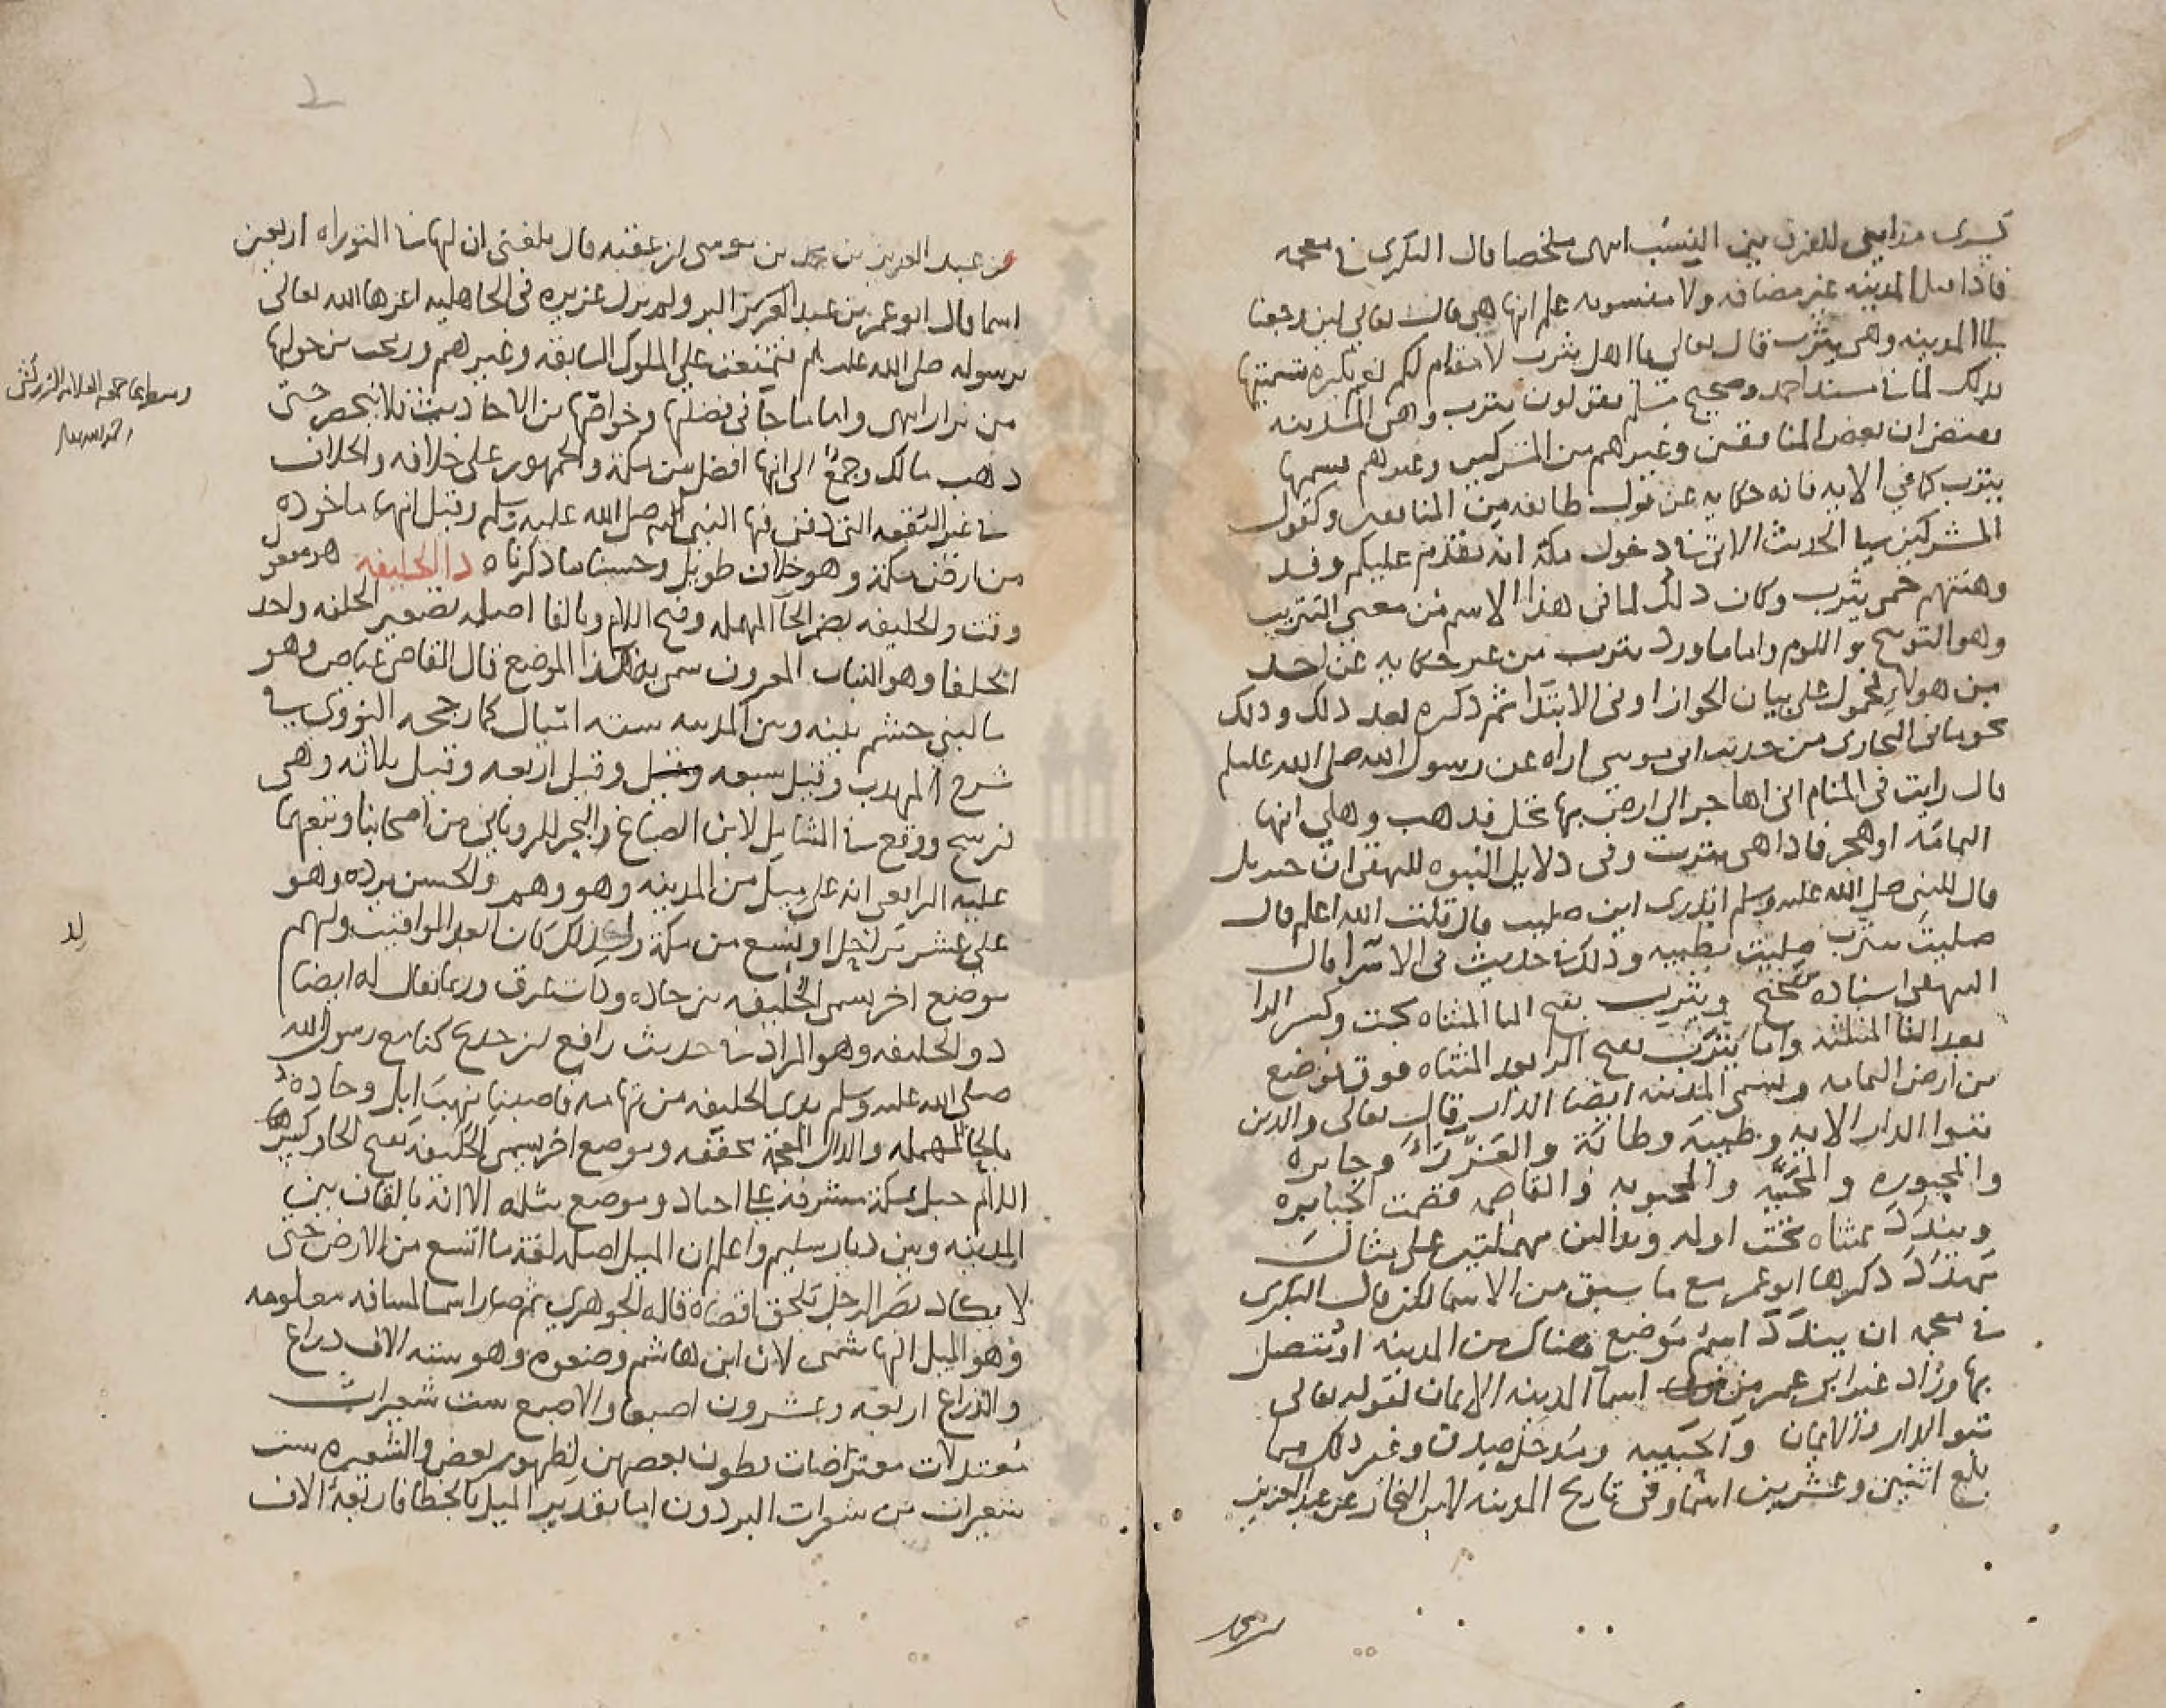 كسرى مدايني للفرق بين النسب انتهى ملخصا قال البكري في معجمه
فاذا قيل المدينه غير مضافه ولا منسوبه علم انها هي قال تعالى لين رجعنا
الى المدينه وهي يثرب قال تعالى يا اهل يثرب لا مقام لكم نعم يكره تسميتها
بذلك لما في مسند احمد وصحيح مسلم يقولون يثرب وهي المدينه
يعنى ان بعض المنافقين وغيرهم من المشركين وغيرهم يسميها
يثرب كما في الايه فانه حكايه عن قول طايفه من المنافقين وكقول
المشركين في الحديث الاتي في دخول مكة انه يقدم عليكم وفد
وهنتهم حمى يثرب وكان ذلك لما في هذا الاسم من معنى التثريب
وهو التوبيخ واللوم واما ما ورد يثرب من غير حكايه عن احد
من هولاء فمحمول على بيان الجواز او في الابتدا ثم ذكره بعد ذلك وذلك
نحو ما في البخاري من حديث ابي موسى اراه عن رسول الله صلى الله عليه وسلم
قال رايت في المنام اني اهاجر الى ارض بها نخل فذهب وهلي انها
اليمامة او هجر فاذا هي يثرب وفي دلايل النبوه للبيهقي ان جبريل
قال للنبي صلى الله عليه وسلم اتدري اين صليت قال قلت الله اعلم قال
صليت بيثرب صليت بطيبه وذلك في حديث في الاسرا قال
البيهقي اسناده صحيح ويثرب بفتح اليا المثناه تحت وكسر الرا
بعد الثا المثلثه واما يترب بفتح الرا بعد المثناه فوق فموضع
من ارض اليمامه وتسمى المدينه ايضا الدار قال تعالى والذين
تبوا الدار الايه وطيبة وطابة والعذراء وجابره
والمجبوره والمحببة والمحبوبه والقاصمه قصمت الجبابره
ويندد بمثناه تحت اوله وبدالين مهملتين على مثال
مهدد ذكرها ابو عمر مع ما سبق من الاسما لكن قال البكري
في معجمه ان يندد اسم موضع هناك من المدينه او متصل
بها وزاد غير ابي عمر من اسما المدينه الايمان لقوله تعالى
تبوا الدار والايمان والحبيبه ومدخل صدق وغير ذلك مما
بلغ اثنين وعشرين اسما وفي تاريخ المدينه لابن النجار عن عبد العزيز
عن عبد العزيز بن محمد بن موسى بن عقبه قال بلغني ان لها في التوراه اربعين
اسما قال ابو عمر بن عبد البر ولم يزل عزيزه في الجاهليه اعزها الله تعالى
برسوله صلى الله عليه وسلم فتمنعت على الملوك السابقه وغيرهم من حولها
من نزار انتهى واما ما جا في فضلها وخواصها من الاحاديث فلا ينحصر حتى
ذهب مالك وجمع الى انها افضل من مكة والجمهور على خلافه والخلاف
في غير البقعه التي دفن فيها النبي صلى الله عليه وسلم وقيل انها ماخوذه
من ارض مكة وهو خلاف طويل وحسبنا ما ذكرناه ذا الحليفه هو مفعول
وقت والحليفه بضم الحا المهمله وفتح اللام وبالفا اصله تصغير الحلفه واحد
الحلفا وهو النبات المعروف سمي به هذا الموضع قال القاضي عياض وهو
ما لبني جشم بينه وبين المدينه سته اميال كما رجحه النووي في
شرح المهذب وقيل سبعه وقيل اربعه وقيل ثلاثه وهي
فرسخ ووقع في الشامل لابن الصباغ والبحر للروياني من اصحابنا وتبعهما
عليه الرافعي انه على ميل من المدينه وهو وهم والحسن يرده وهو
على عشر مراحل او تسع من مكة ولذلك كان ابعد المواقيت ولهم
موضع اخر يسمى الحليفه بين حاذه وذات عرق وربما يقال له ايضا
ذو الحليفه وهو المراد في حديث رافع بن خديج كنا مع رسول الله
صلى الله عليه وسلم بذي الحليفه من تهامه فاصبنا نهب ابل وحاذه
بالحا المهمله والذال المعجمة مخففه وموضع اخر يسمى الحليفه بفتح الحا وكسر
اللام جبل بمكة مشرف على اجياد وموضع مثله الا انه بالقاف بين
المدينه وبين ديار سليم واعلم ان الميل اصله لغة ما اتسع من الارض حتى
لا يكاد بصر الرجل يلحق اقصاه قاله الجوهري ثم صار اسما لمسافه معلومه
وهو الميل الهاشمي لان ابن هاشم وضعوه وهو سته الاف ذراع
والذراع اربعه وعشرون اصبعا والاصبع ست شعيرات
معتدلات معترضات بطون بعضهن لظهور بعض والشعيره ست
شعرات من شعرات البرذون اما تقدير الميل بالخطا فاربعة الاف